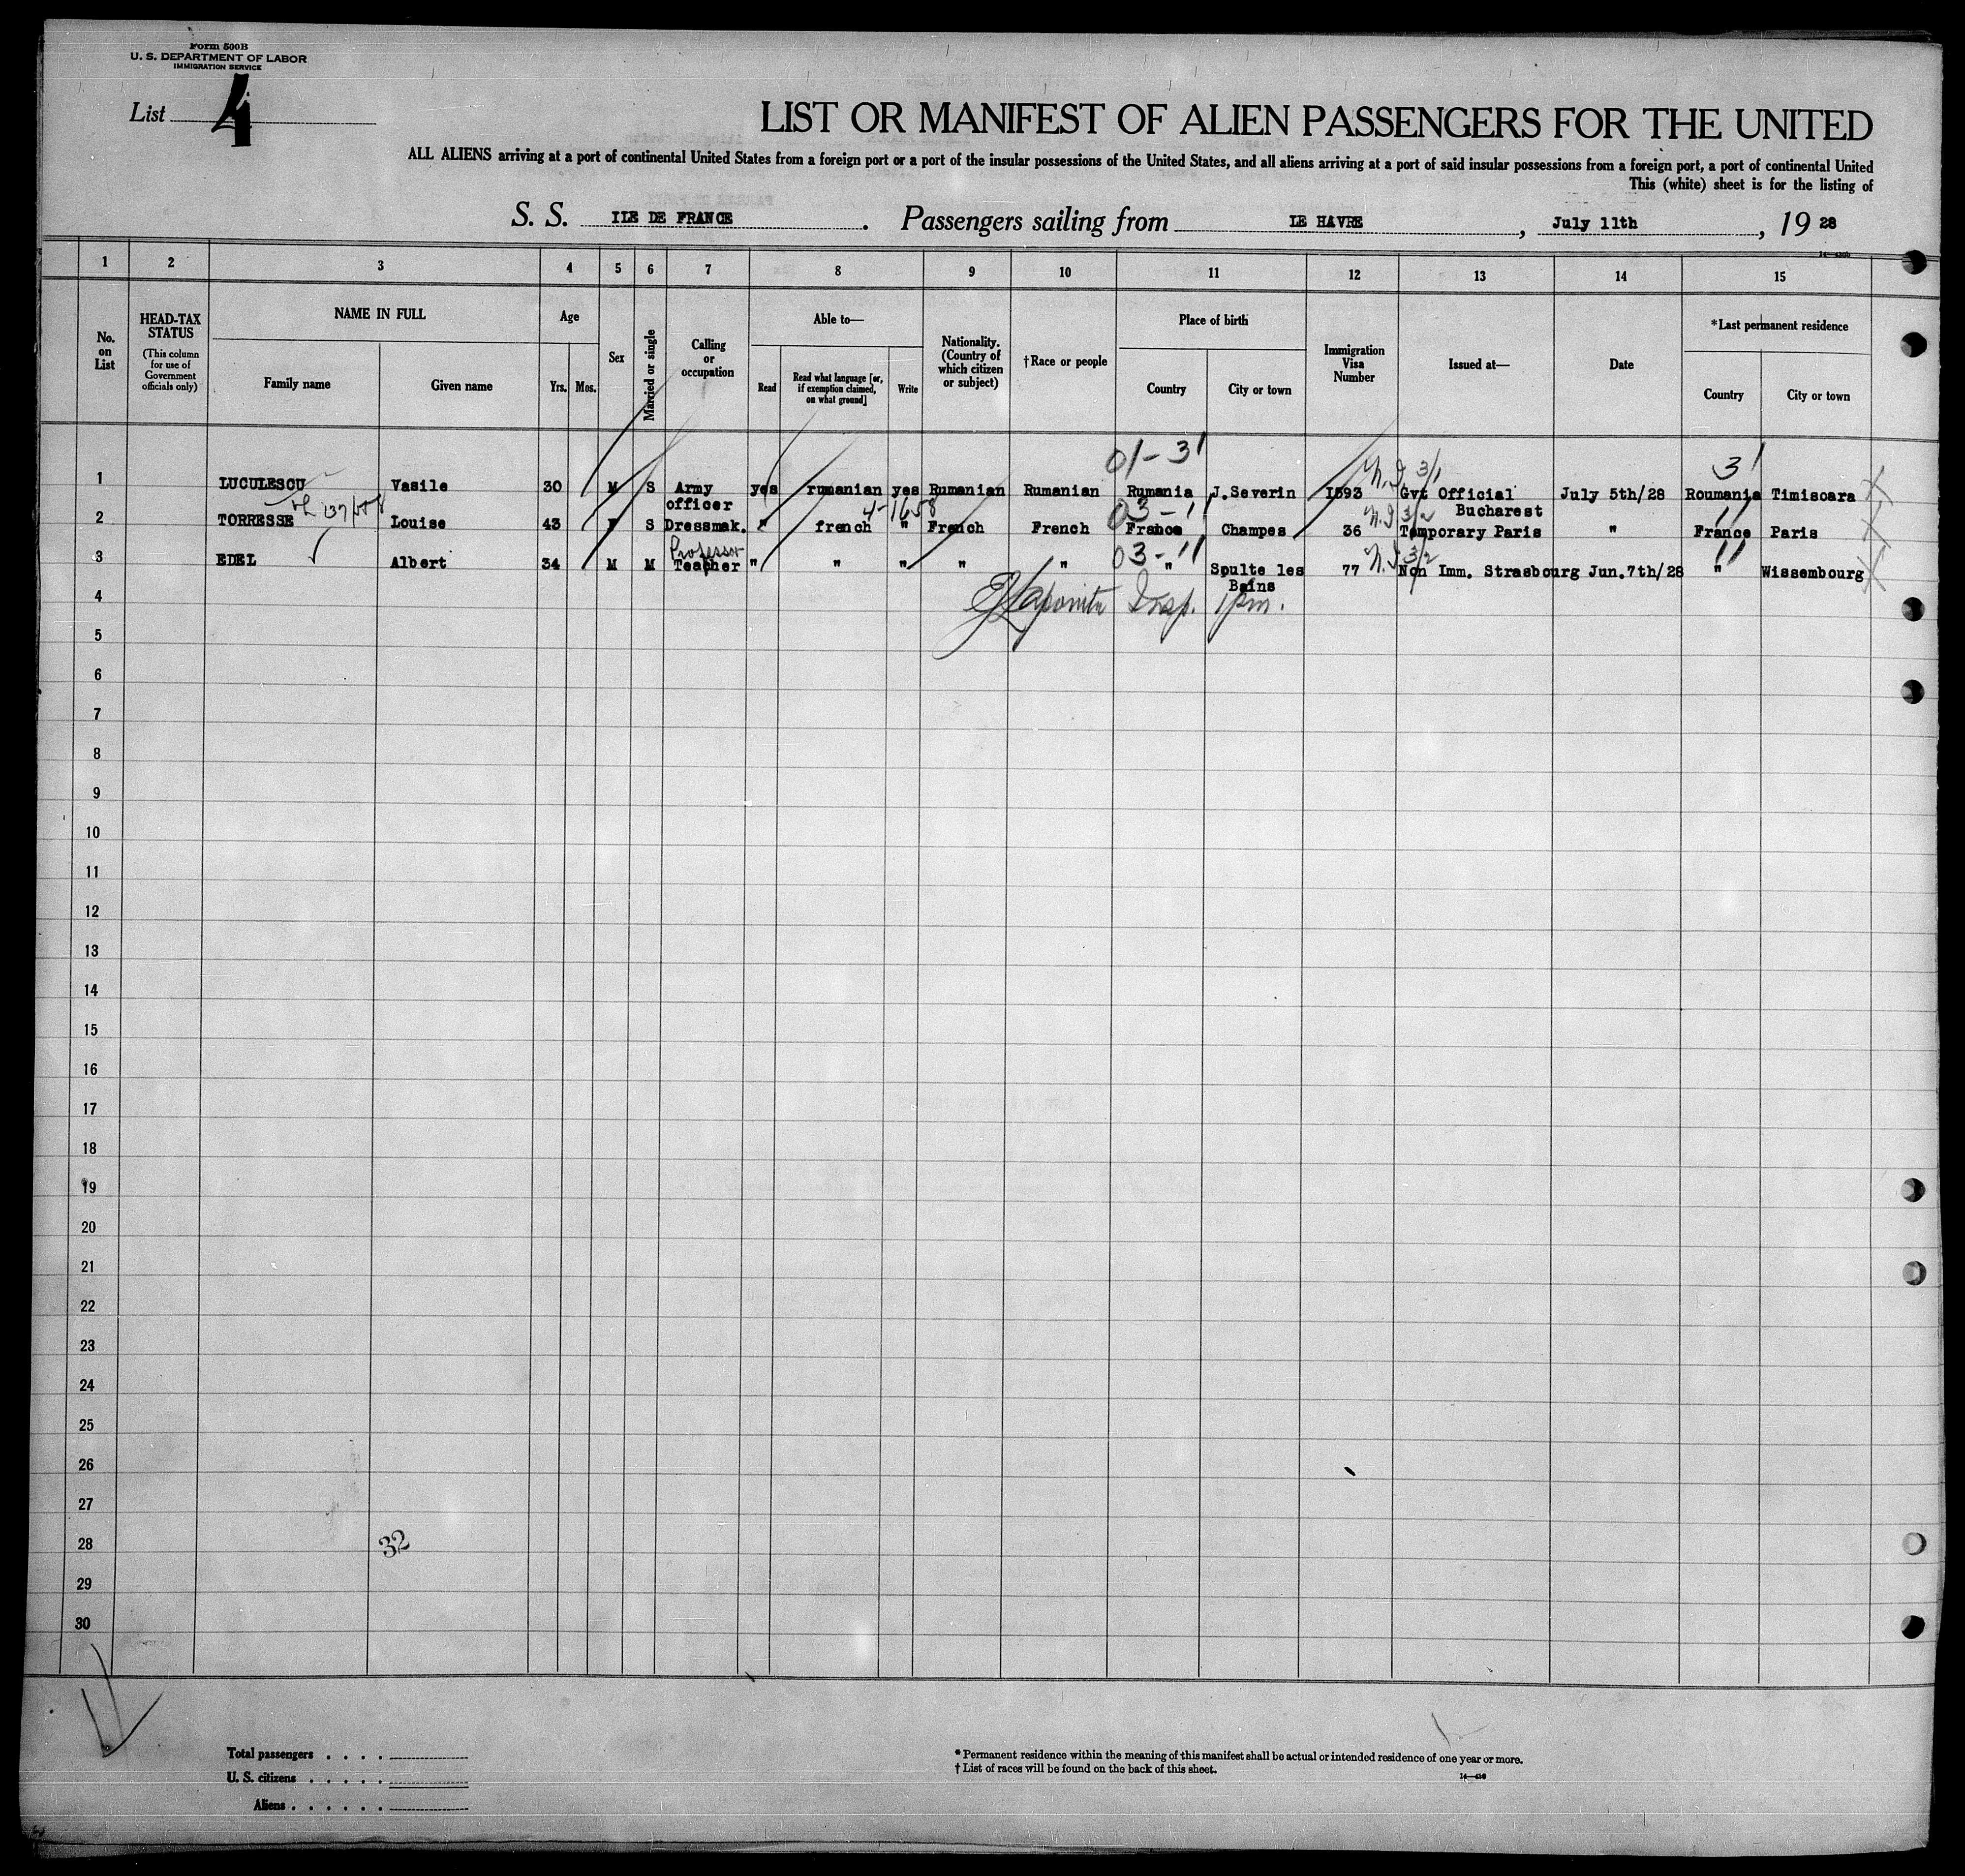 Form 500B
U. S. DEPARTMENT OF LABOR
IMMIGRATION SERVICE
List 4
LIST OR MANIFEST OF ALIEN PASSENGERS FOR THE UNITED
ALL ALIENS arriving at a port of continental United States from a foreign port or a port of the insular possessions of the United States, and all aliens arriving at a port of said insular possessions from a foreign port, a port of continental United
This (white) sheet is for the listing of
S. S. ILE DE FRANCE. Passengers sailing from LE HAVRE, July 11th, 19 28
1 2 3 4 5 6 7 8 9 10 11 12 13 14 15
No. on List
HEAD-TAX STATUS
(This column for use of Government officials only)
NAME IN FULL
Family name Given name
Age
Yrs. Mos.
Sex
Married or single
Calling or occupation
Able to—
Read
Read what language [or, if exemption claimed, on what ground]
Write
Nationality. (Country of which citizen or subject)
†Race or people
Place of birth
Country City or town
Immigration Visa Number
Issued at—
Date
*Last permanent residence
Country City or town
01-31
N.I 3/1
31
1 LUCULESCU Vasile 30 M S Army officer yes rumanian yes Rumanian Rumanian Rumania J.Severin 1593 Gvt Official Bucharest July 5th/28 Roumania Timisoara
4-1658
03-11
N.I 3/2
11
2 TORRESSE Louise 43 F S Dressmak. " french " French French France Champes 36 Temporary Paris " France Paris
Professor
03-11
N.I 3/2
11
3 EDEL Albert 34 M M Teacher " " " " " " Spulte les Bains 77 Non Imm. Strasbourg Jun.7th/28 " Wissembourg
4 Insp. 1pm.
5
6
7
8
9
10
11
12
13
14
15
16
17
18
19
20
21
22
23
24
25
26
27
28 32
29
30
Total passengers . . . .
U. S. citizens . . . . .
Aliens . . . . . .
* Permanent residence within the meaning of this manifest shall be actual or intended residence of one year or more.
† List of races will be found on the back of this sheet.